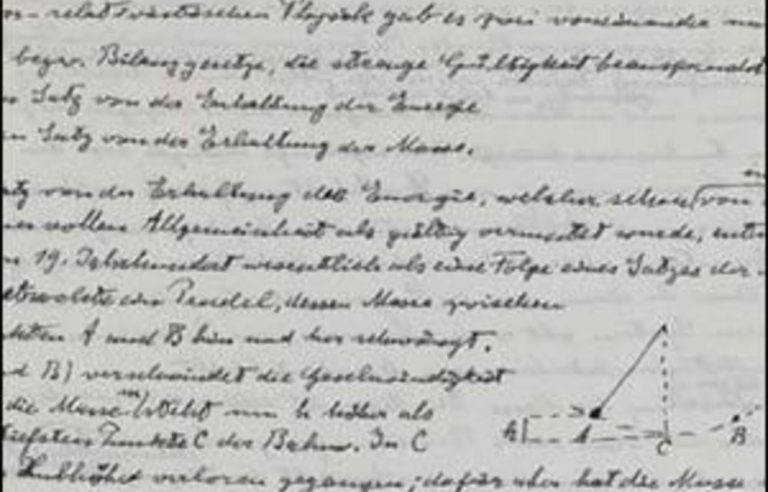 relativistischen Physik gab es zwei voneinander
bezw. Bilanzgesetze, die strenge Gültigkeit beanspruchen
Satz von der Erhaltung der Energie
Satz von der Erhaltung der Masse.
von der Erhaltung der Energie, welcher schon von
vollen Allgemeinheit als gültig vermutet wurde,
19. Jahrhundert wesentlich als eine Folge eines Satzes der
ein Pendel, dessen Masse zwischen
A und B hin und her schwingt.
B) verschwindet die Geschwindigkeit
die Masse m steht um h höher als
tiefsten Punkte C der Bahn. In C
Hubhöhe verloren gegangen; dafür aber hat die Masse
h A C B